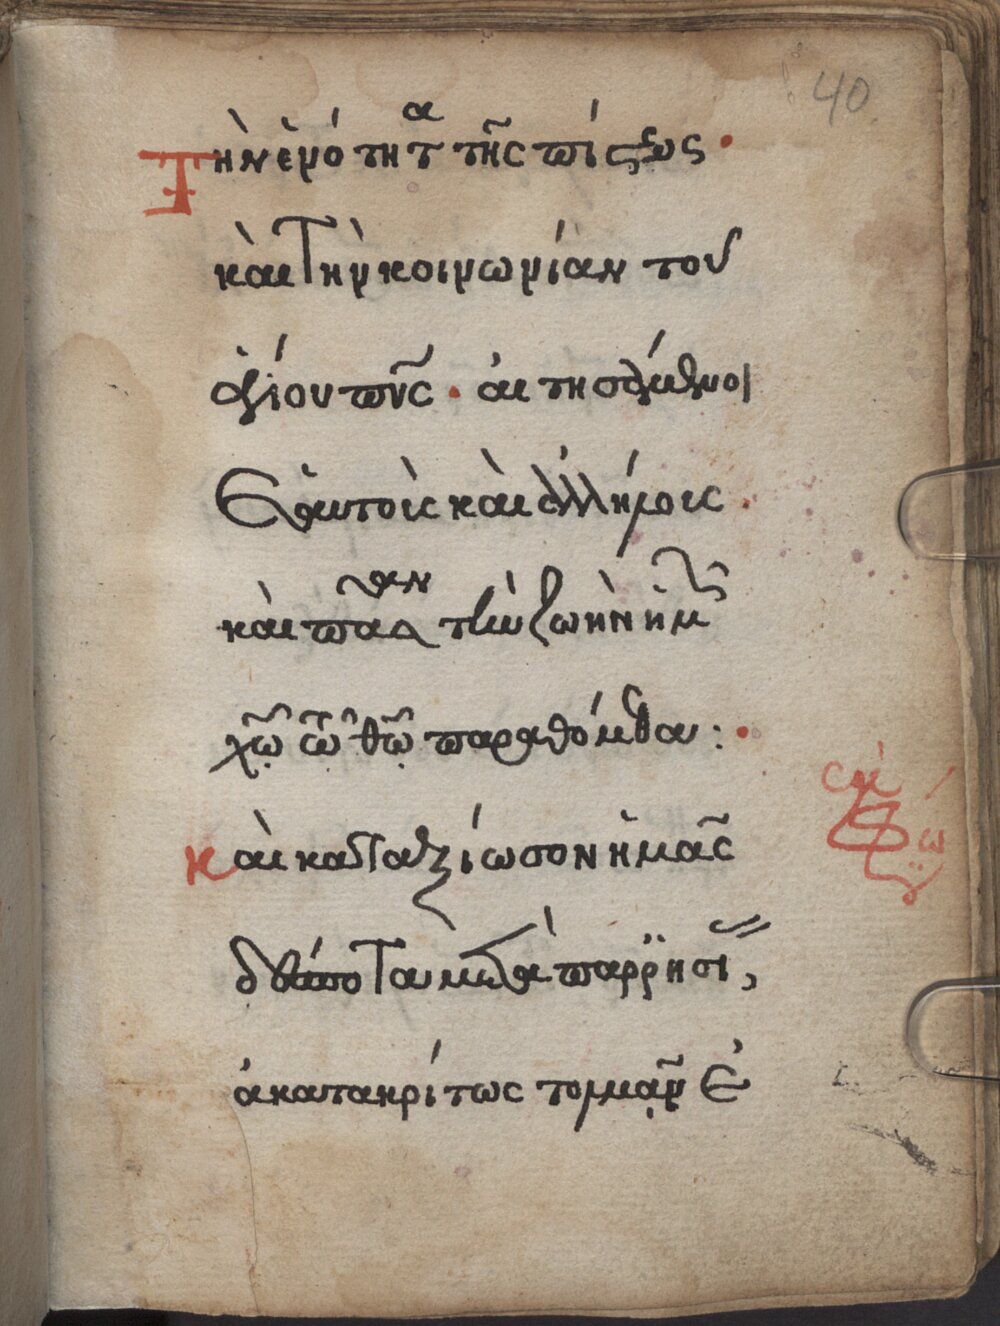 40
Τὴν ἑνότητα τῆς πίστεως ·
καὶ τὴν κοινωνίαν τοῦ
ἁγίου πν̅ς · αἰτησάμενοι
ἑαυτοὺς καὶ ἀλλήλους ·
καὶ πᾶσαν τὴν ζωὴν ἡμῶν
χῶ τῶ θῶ παραθόμεθα : ·
Καὶ καταξίωσον ἡμᾶς
δέσποτα μετὰ παρρησί
ἀκατακρίτως τολμᾶν ἐ